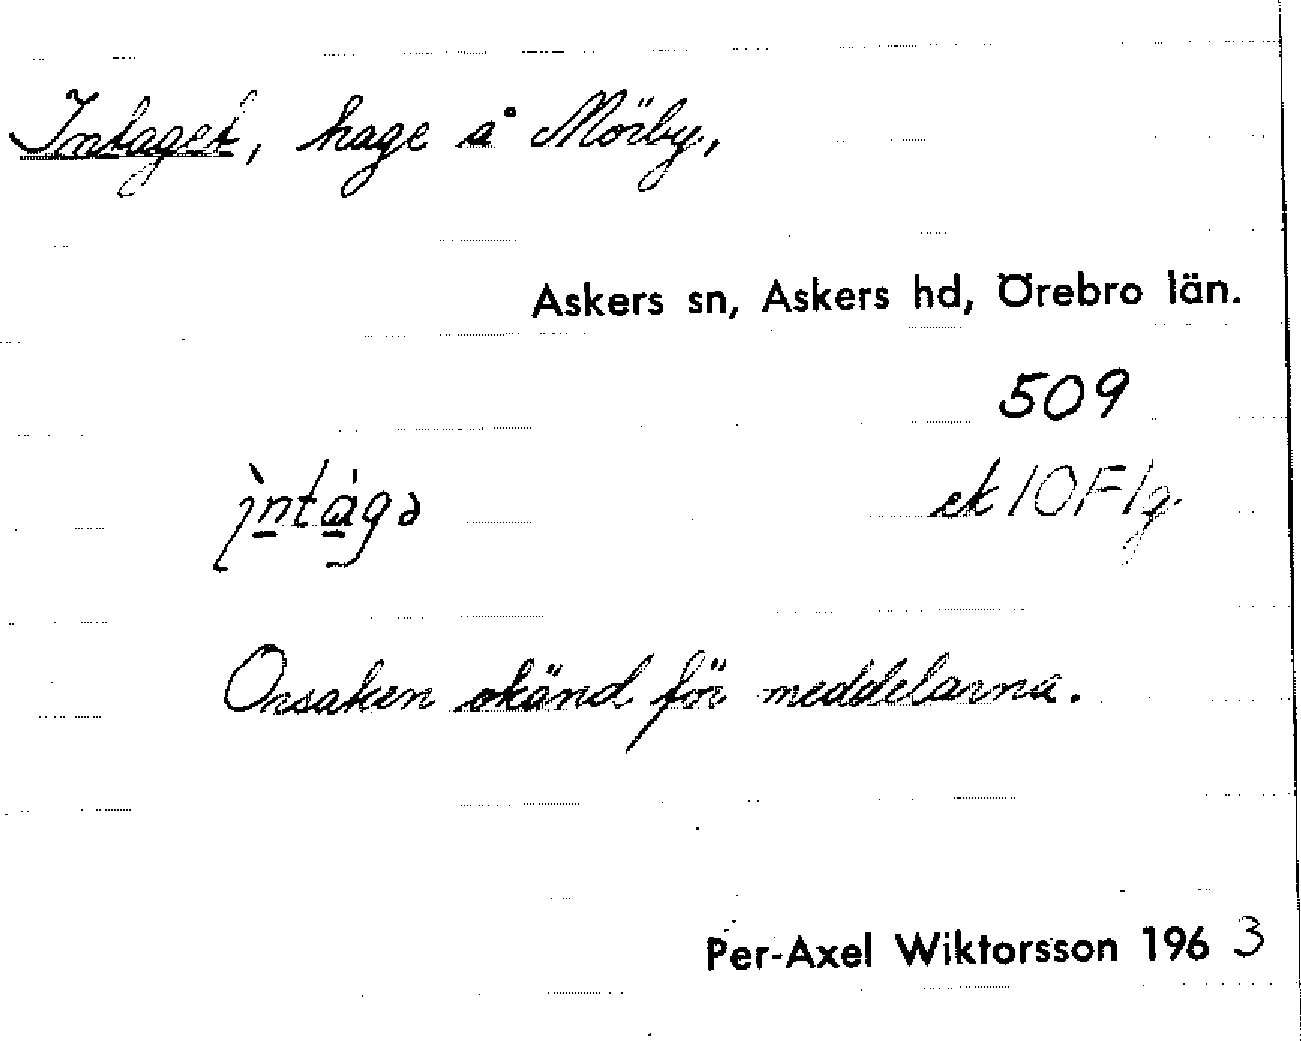 Intaget, hage å Mörby,
Askers sn, Askers hd, Örebro län.
509
ìntágə
ek 10F1g
Orsaken okänd för meddelarna.
Per-Axel Wiktorsson 1963